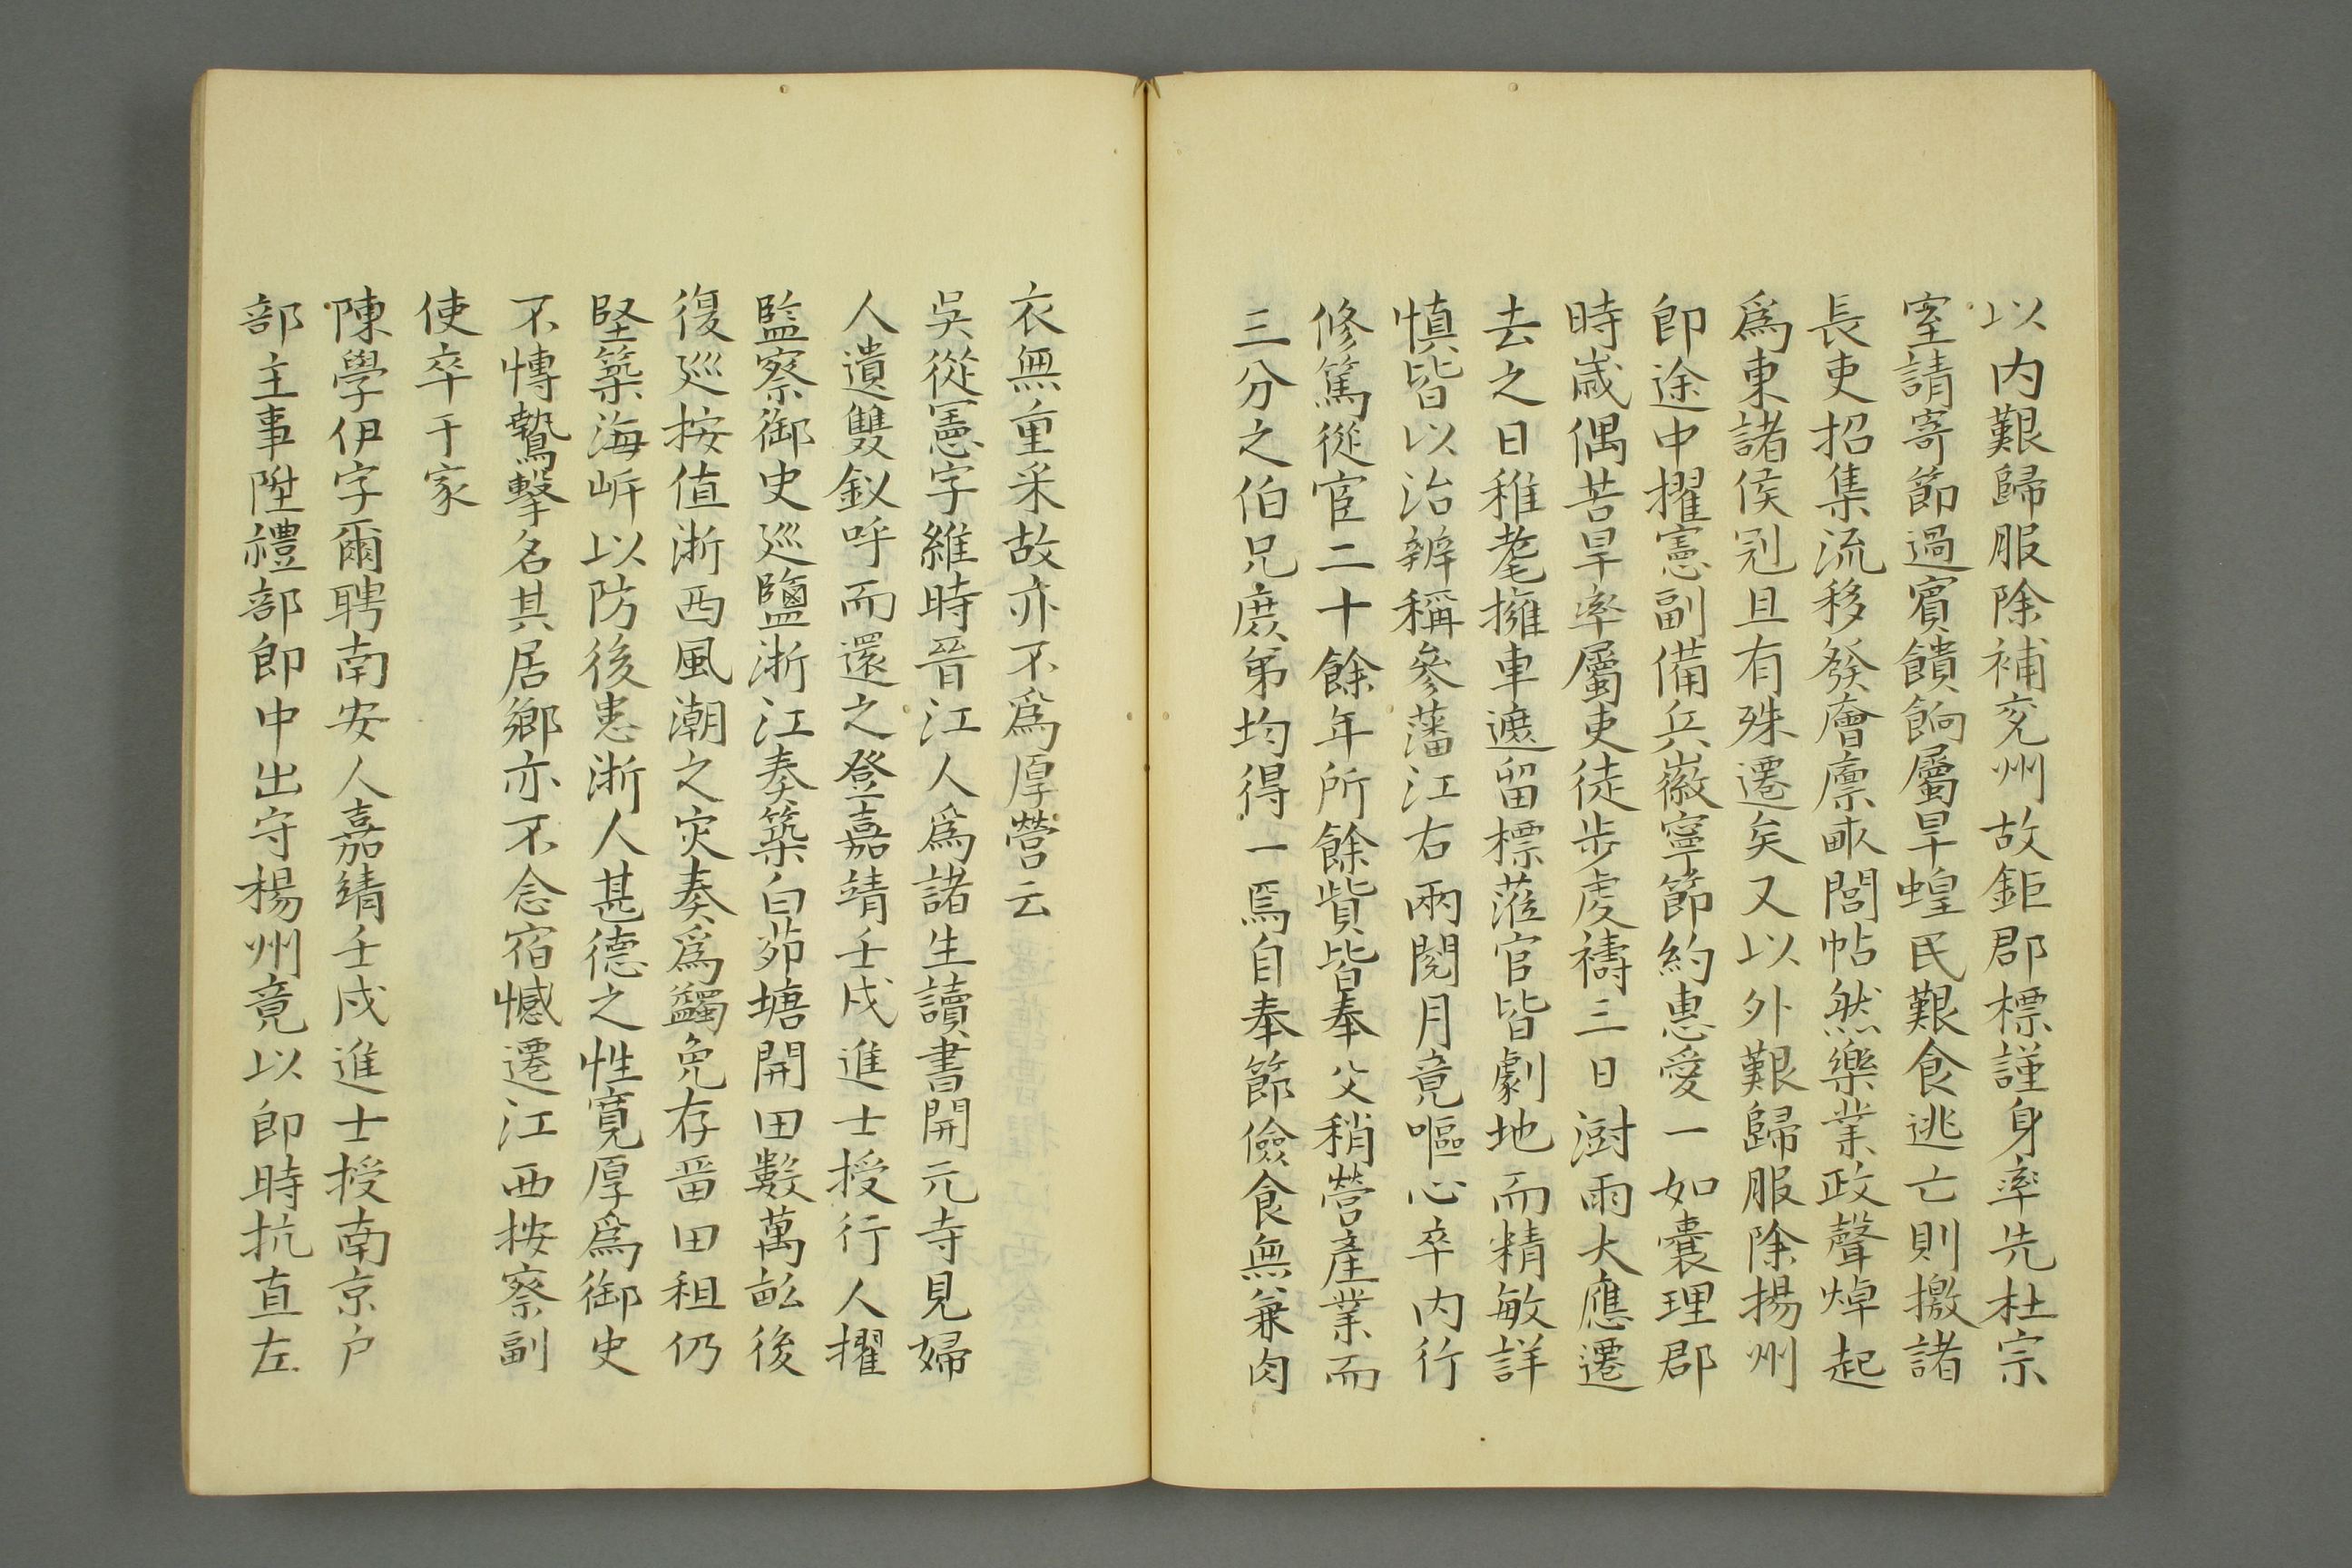 以内艱歸服除補兗州故鉅郡標謹身率先杜宗
室請寄節過賓饋餉屬旱蝗民艱食逃亡則檄諸
長吏招集流移發廥廪畝閭帖然樂業政聲焯起
爲東諸侯冠且有殊遷矣又以外艱歸服除揚州
即途中擢憲副備兵徽寧節約惠愛一如囊理郡
時歲偶苦旱率屬吏徒步虔禱三日澍雨大應遷
去之日稚耄擁車遮留標蒞官皆劇地而精敏詳
慎皆以治辨稱參藩江右兩閱月竟嘔心卒内行
修篤從宦二十餘年所餘貲皆奉父稍營產業而
三分之伯兄庶弟均得一焉自奉節儉食無兼肉
衣無重采故亦不爲厚營云
吳從憲字維時晉江人爲諸生讀書開元寺見婦
人遺雙釵呼而還之登嘉靖壬戌進士授行人擢
監察御史巡鹽浙江奏築白茆塘開田數萬畝後
復巡按值浙西風潮之灾奏爲蠲免存畱田租仍
堅築海岍以防後患浙人甚德之性寬厚爲御史
不愽鷙擊名其居鄉亦不念宿憾遷江西按察副
使卒于家
陳學伊字爾聘南安人嘉靖壬戌進士授南京户
部主事陞禮部郎中出守楊州竟以郎時抗直左